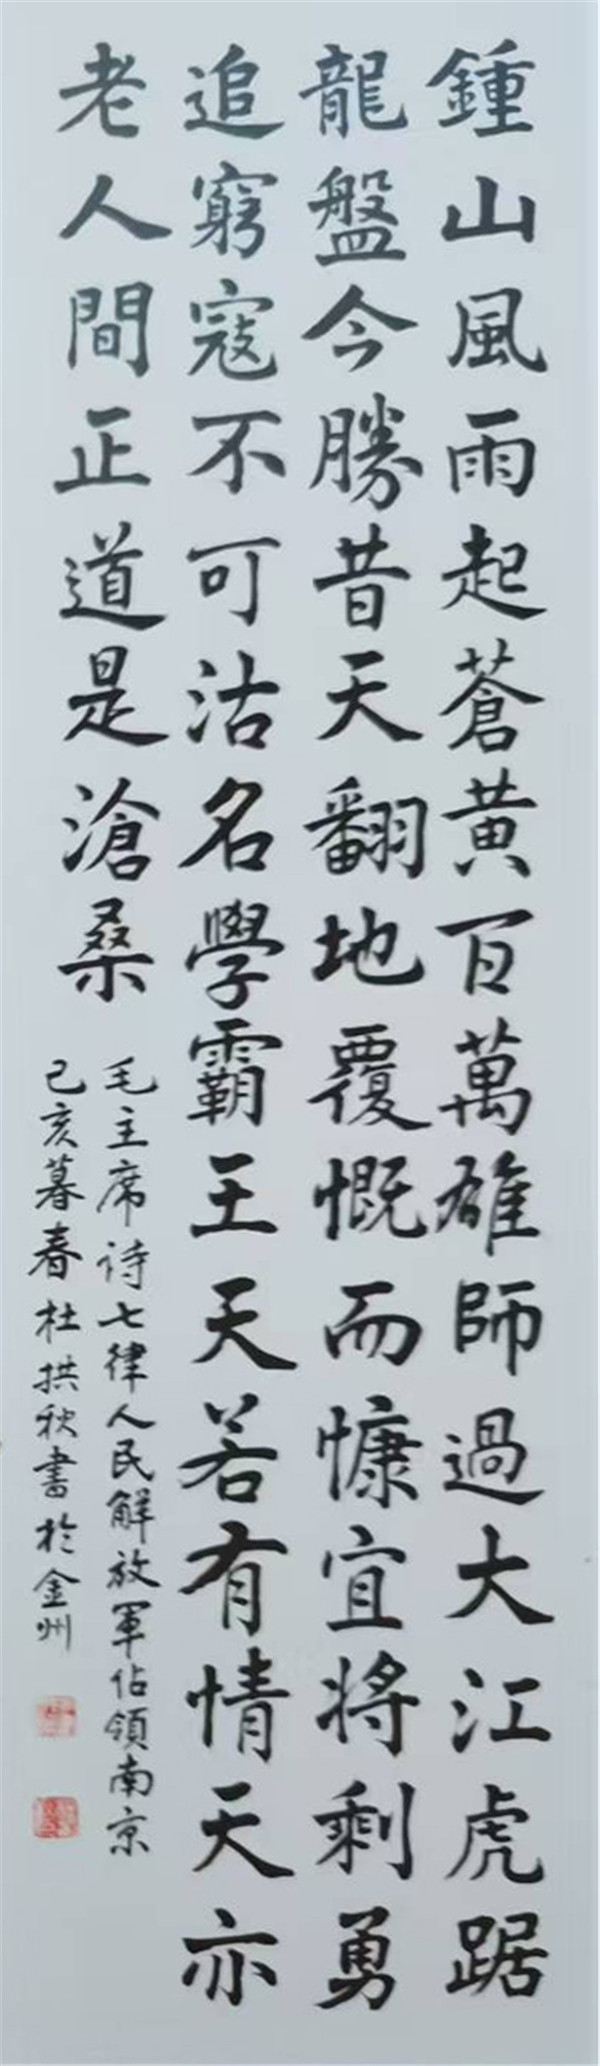 鍾山風雨起蒼黃百萬雄師過大江虎踞
龍盤今勝昔天翻地覆慨而慷宜將剩勇
追窮寇不可沽名學霸王天若有情天亦
老人間正道是滄桑
毛主席诗七律人民解放軍佔領南京
己亥暮春杜拱秋書於金州